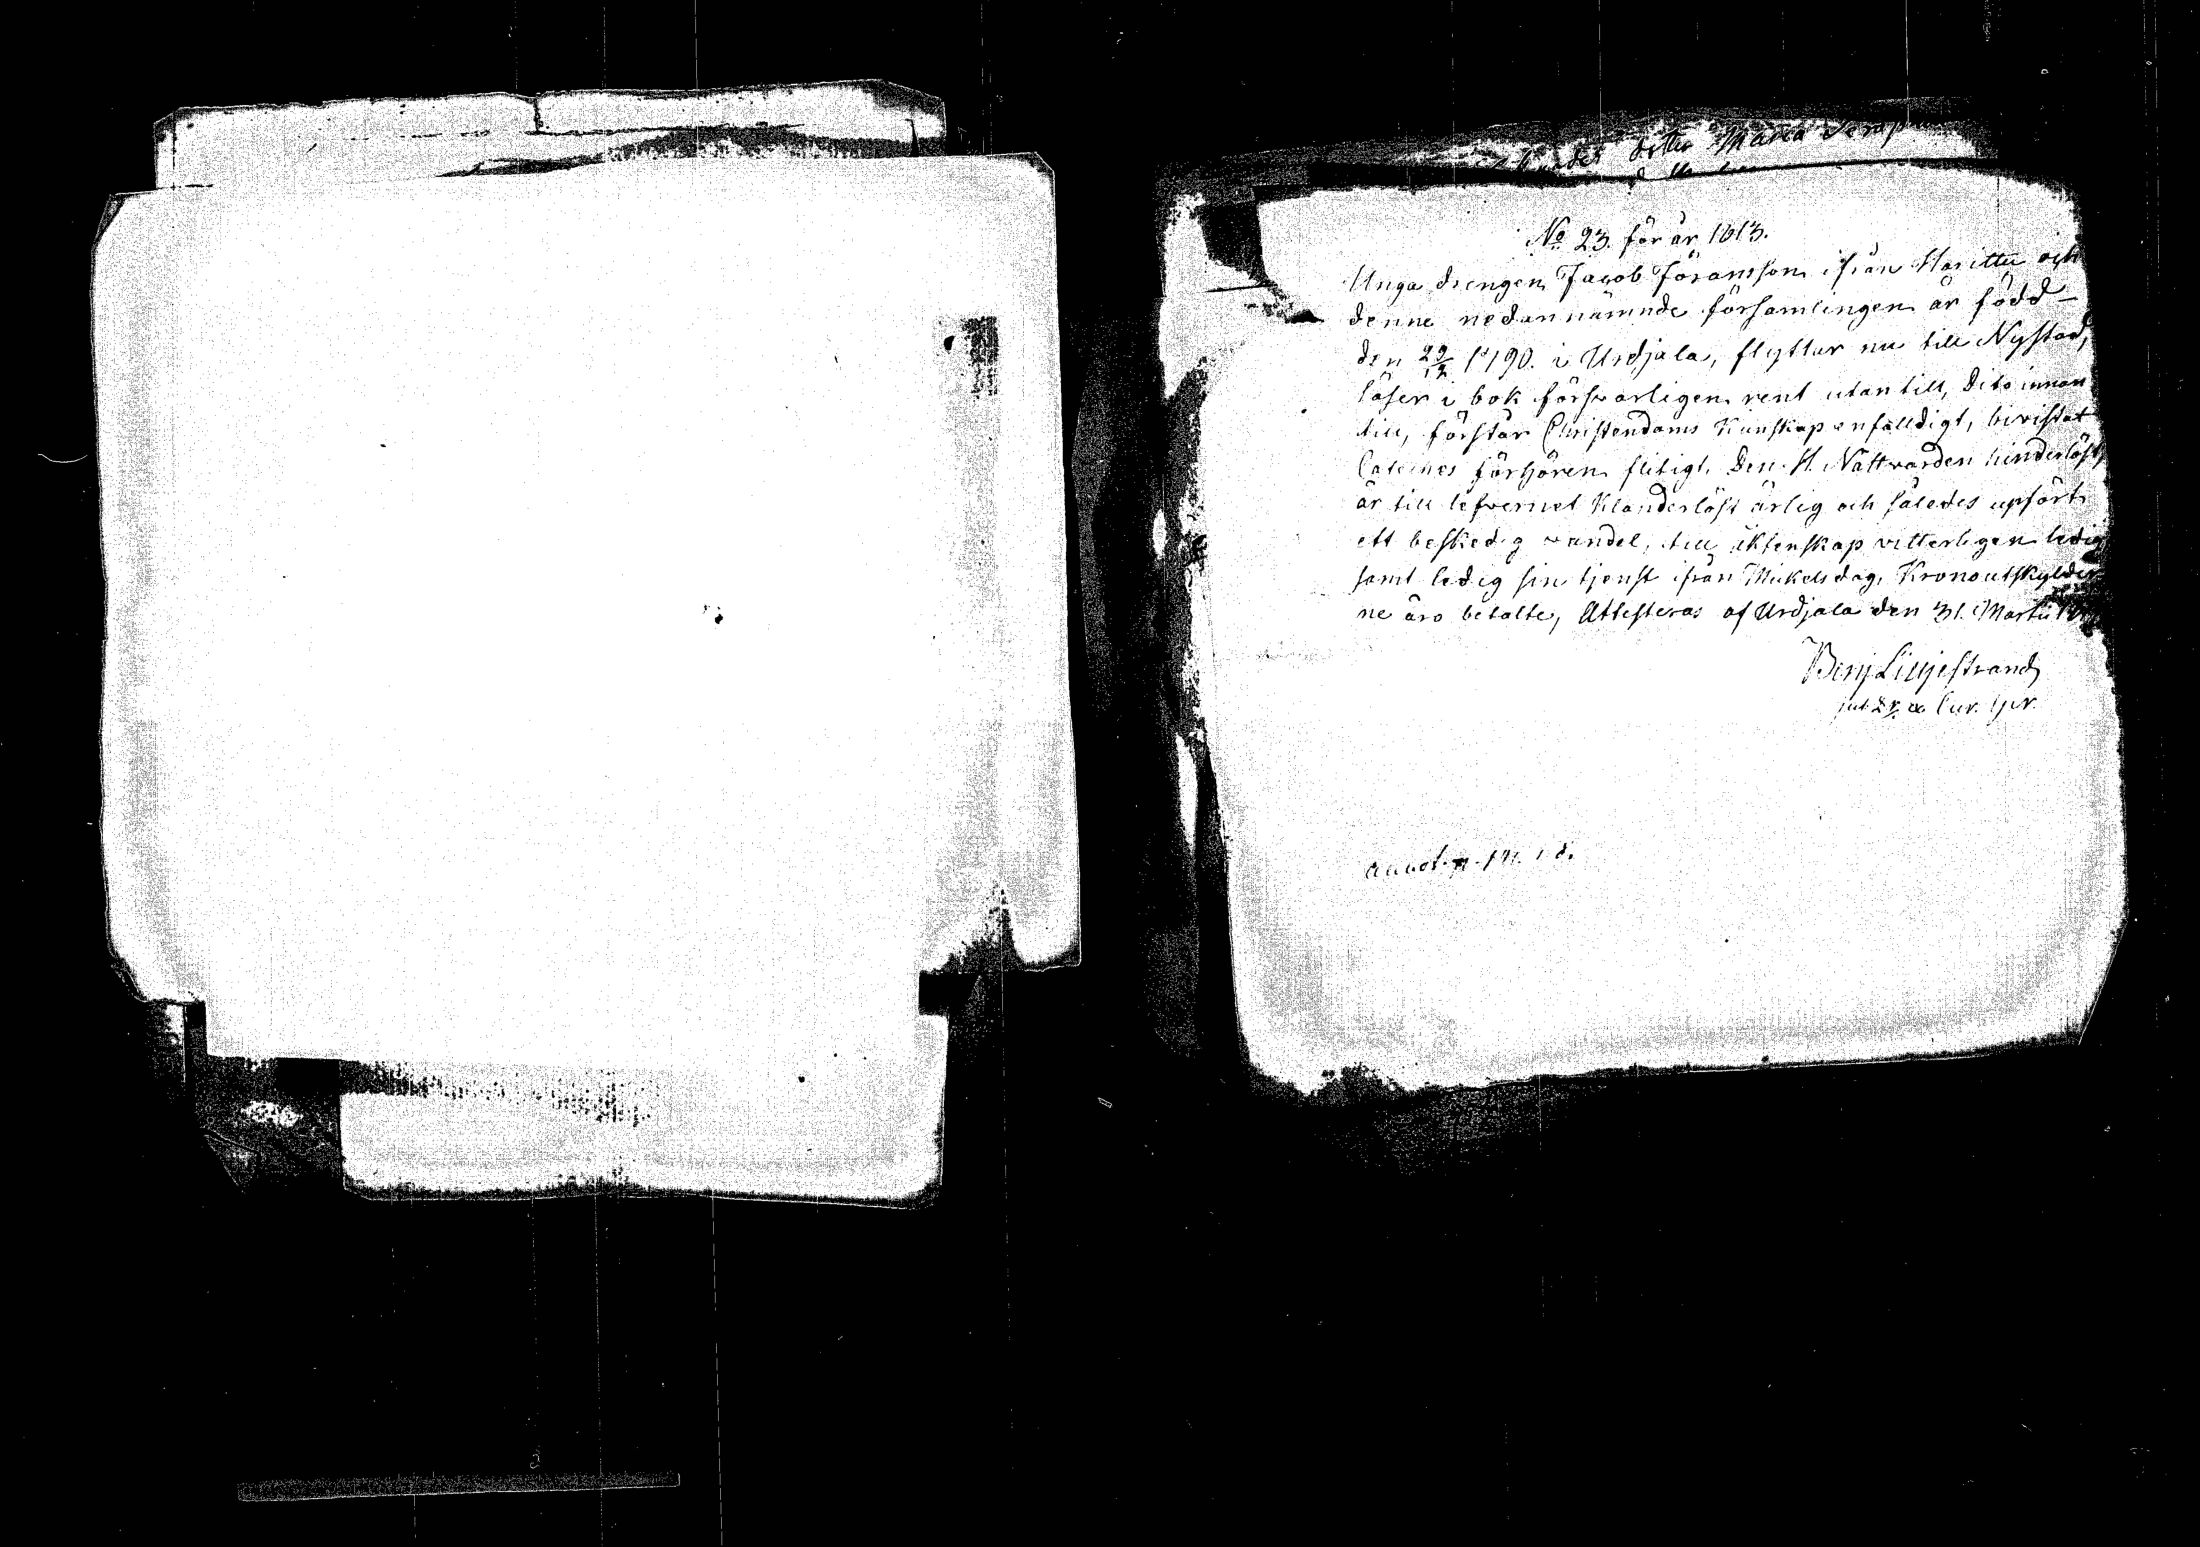 dotter Maria
No 23. för år 1813.
Unga drengen Jacob Jöransson ifrån Haritu och
denne nedannämnde församlingen är född
den 29/12 1790. i Urdjala, flyttar nu till Nystad,
läser i bok försvarligen rent utantill, dito innan
till, förstår Christendoms Kunskap enfalldigt, bivistat
Cateches förhören flitigt, Den H. Nattvarden hinderlöst,
är till lefvernet Klanderlöst ärlig och således upfört
ett beskedig vandel, till äktenskap vitterligen ledig
samt ledig sin tjenst ifrån Mickelsdag, Kronoutskylder
ne äro betalte, Attesteras af Urdjala den 31. Martii
Benj Liljestrand
Cur.
annot.